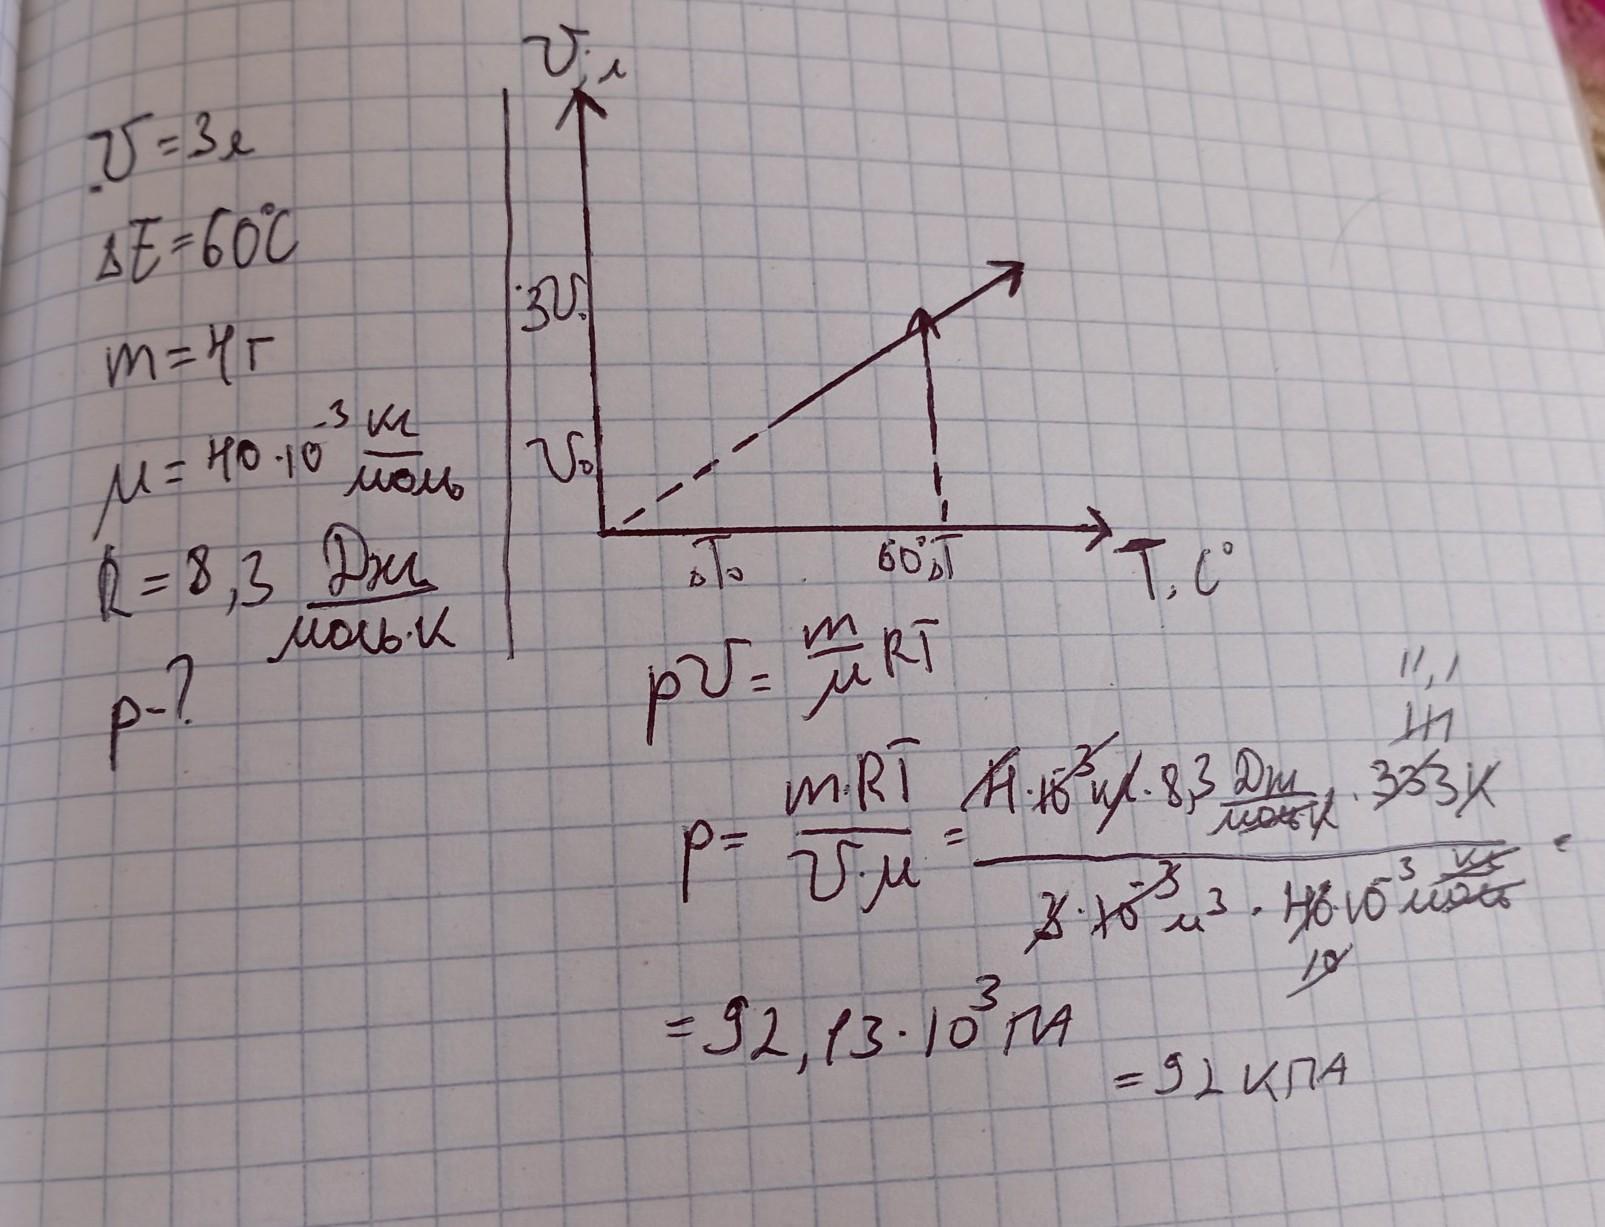 V = 3 л
ΔE = 60°C
m = 4 г
μ = 40·10⁻³ кг/моль
R = 8,3 Дж/моль·К
p - ?
V, л
3V.
V₀
ΔT₀ 60° ΔT T, C°
pV = m/μ RT
11,1
111
p = m·RT / V·μ = 4·10⁻³ кг · 8,3 Дж/моль·К · 333 К / 3·10⁻³ м³ · 40·10⁻³ кг/моль =
10
= 92,13·10³ ПА
= 92 КПА